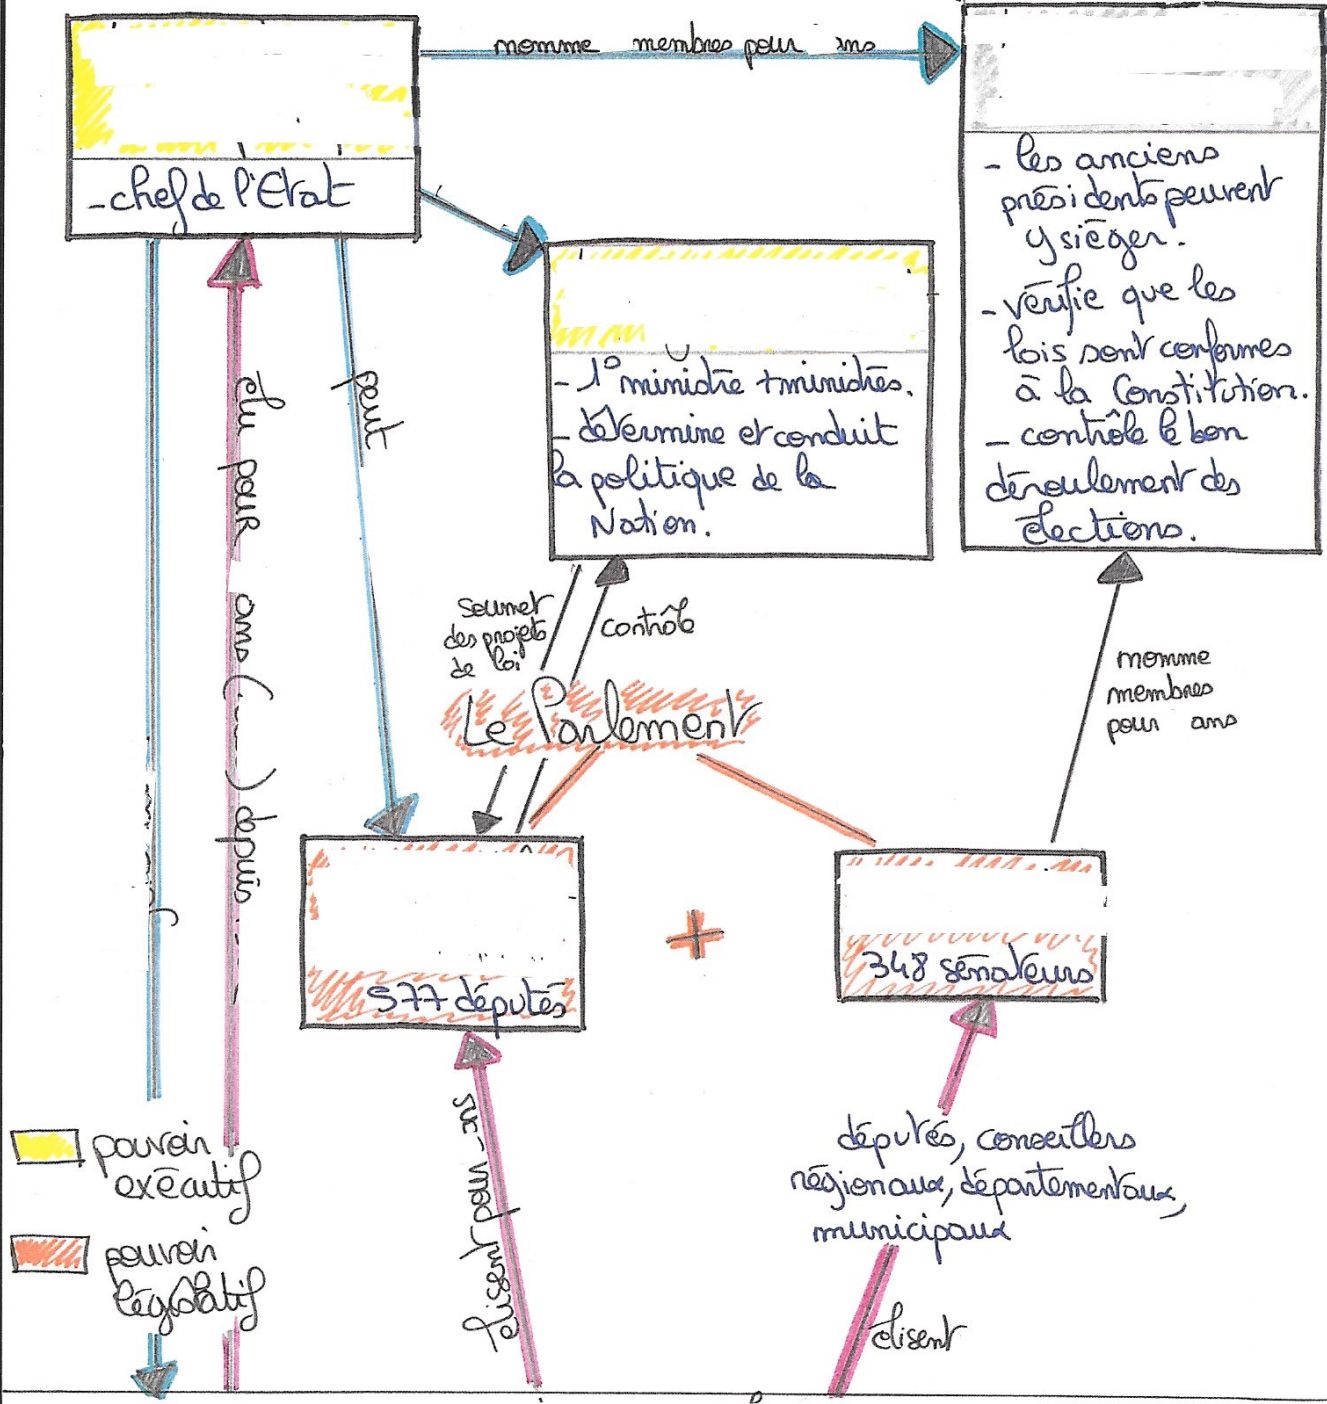 nomme membres pour ans
- chef de l'Etat
- les anciens
présidents peuvent
y siéger.
- vérifie que les
lois sont conformes
à la Constitution.
- contrôle le bon
déroulement des
élections.
- 1° ministre + ministres.
- détermine et conduit
la politique de la
Nation.
élu pour ans ( ) depuis
peut
soumet
des projets
de loi
contrôle
nomme
membres
pour ans
Le Parlement
577 députés
+
348 sénateurs
élisent pour
députés, conseillers
régionaux, départementaux,
municipaux
élisent
pouvoir
exécutif
pouvoir
législatif